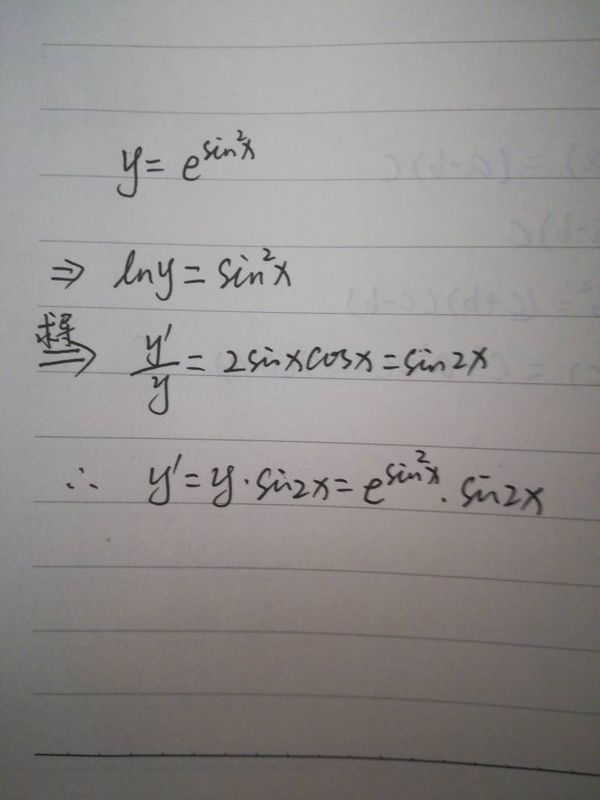 y = e^{sin²x}
⇒ lny = sin²x
求导 ⇒ y'/y = 2sinxcosx = sin2x
∴ y' = y·sin2x = e^{sin²x}·sin2x